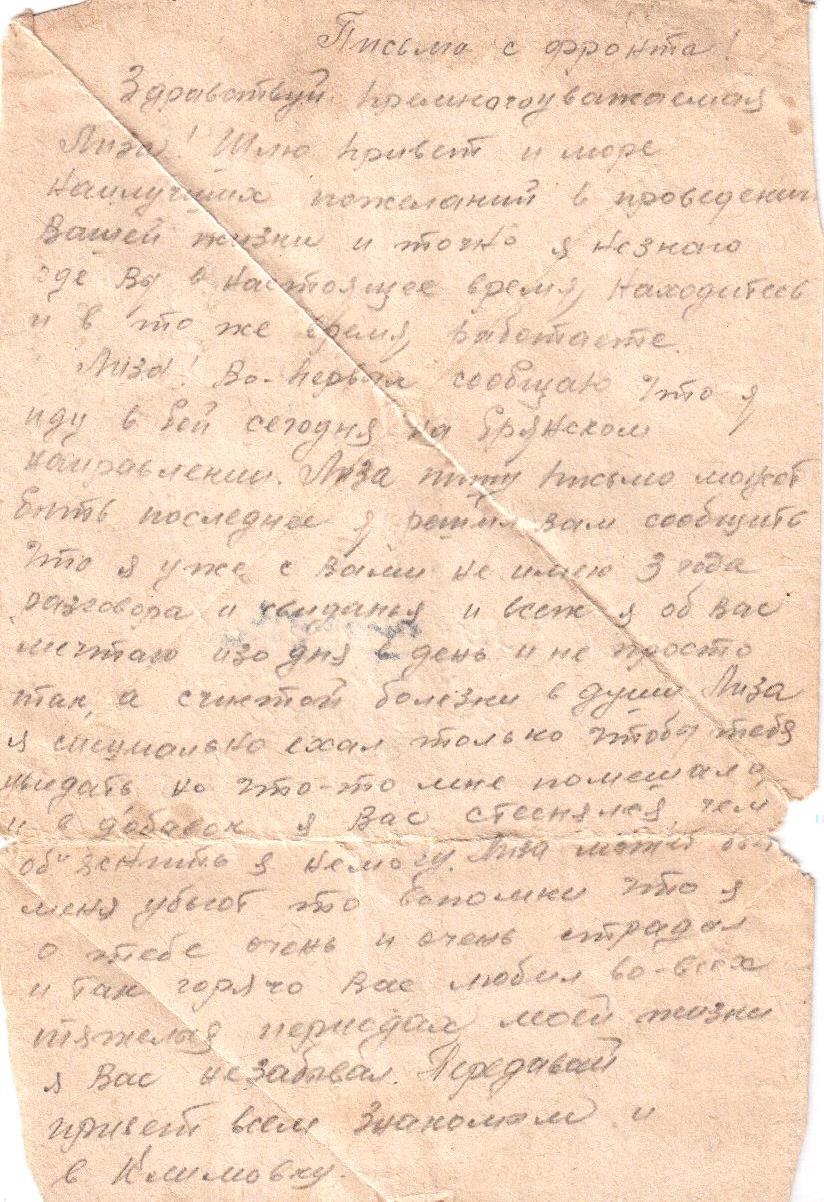 Письмо с фронта!
Здравствуй премногоуважаемая
Лиза! Шлю привет и море
наилучших пожеланий в проведении
Вашей жизни и точно я незнаю
где Вы в настоящее время, находитесь
и в то же время, работаете.
Лиза! Во-первых сообщаю что я
иду в бой сегодня на Брянском
направлении. Лиза пишу письмо может
быть последнее я решил Вам сообщить
что я уже с Вами не имею 3 года
разговора и свиданья и всеж я об Вас
мечтаю изо дня в день и не просто
так, а с чистой болезни в души Лиза
я специально ехал только чтобы тебя
увидать но что-то мне помешало,
и в добавок я Вас стеснялся, чем
об"яснить я немогу. Лиза может быть
меня убьют то вспомни что я
о тебе очень и очень страдал
и так горячо Вас любил во-всех
тяжелых периодах моей жизни
я Вас незабывал. Передавай
привет всем знакомым и
в Климовку.